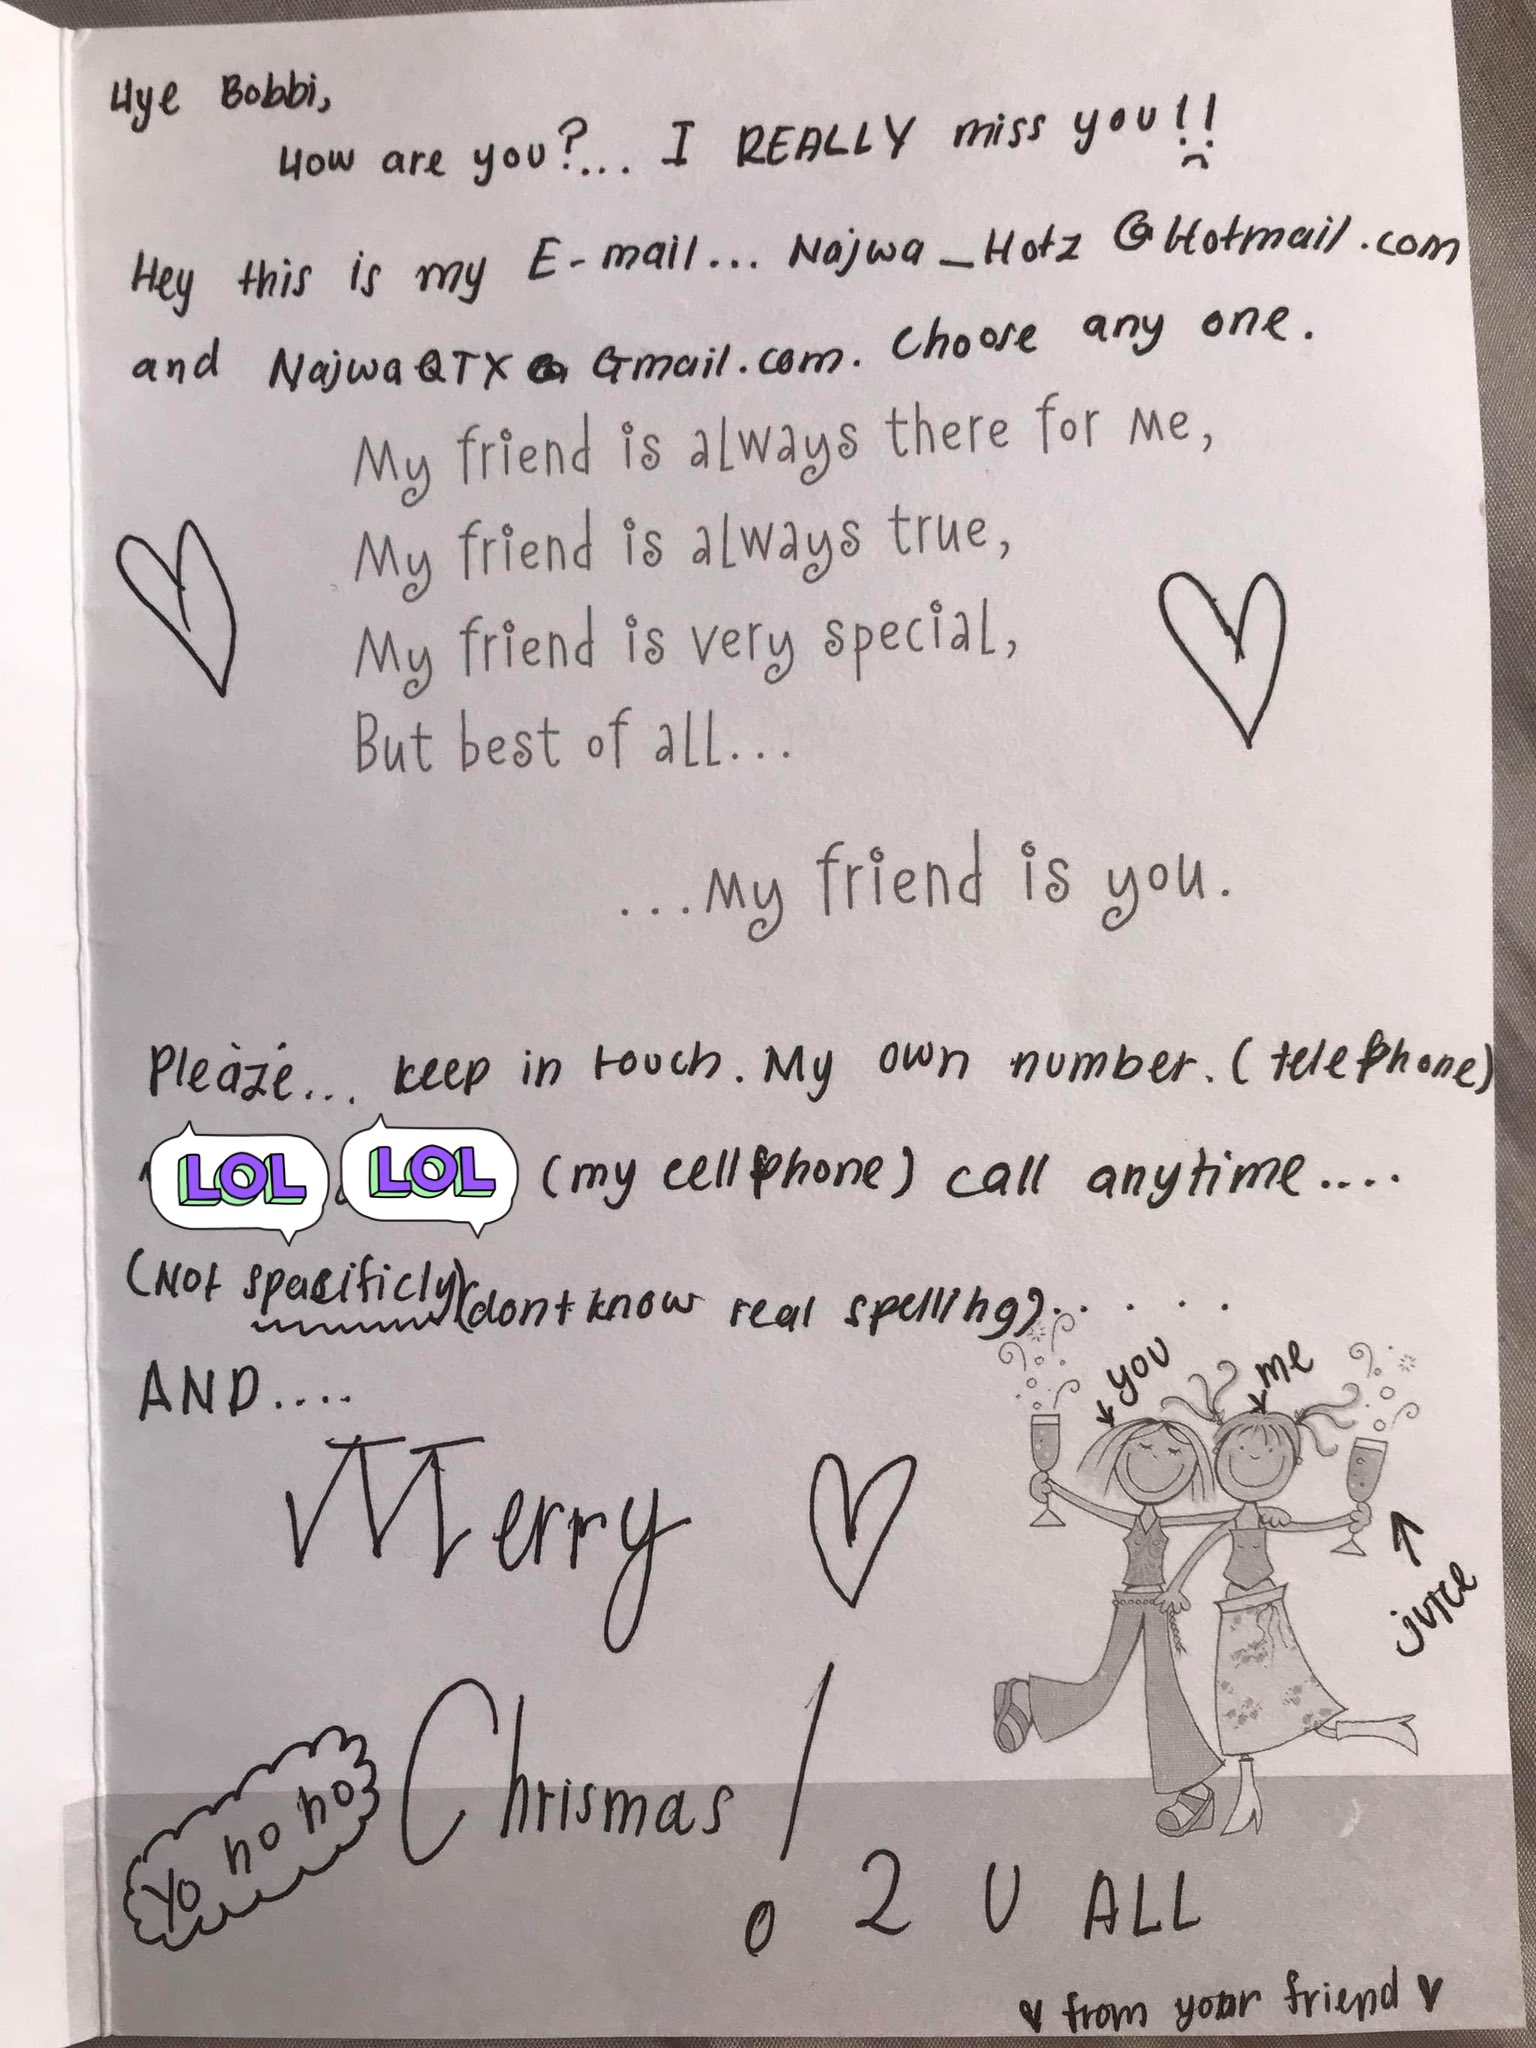 Hye Bobbi,
How are you?... I REALLY miss you!!
Hey this is my E-mail... Najwa_Hotz @Hotmail.com
and NajwaQTX@Gmail.com. Choose any one.
My friend is always there for me,
My friend is always true,
My friend is very special,
But best of all...
...My friend is you.
Pleaze... keep in touch. My own number. (telephone)
LOL LOL (my cellphone) call anytime....
(Not spacificly)(dont know real spelling)......
AND....
you me
Merry
juice
Chrismas!
Yo ho ho
2 U ALL
from your friend